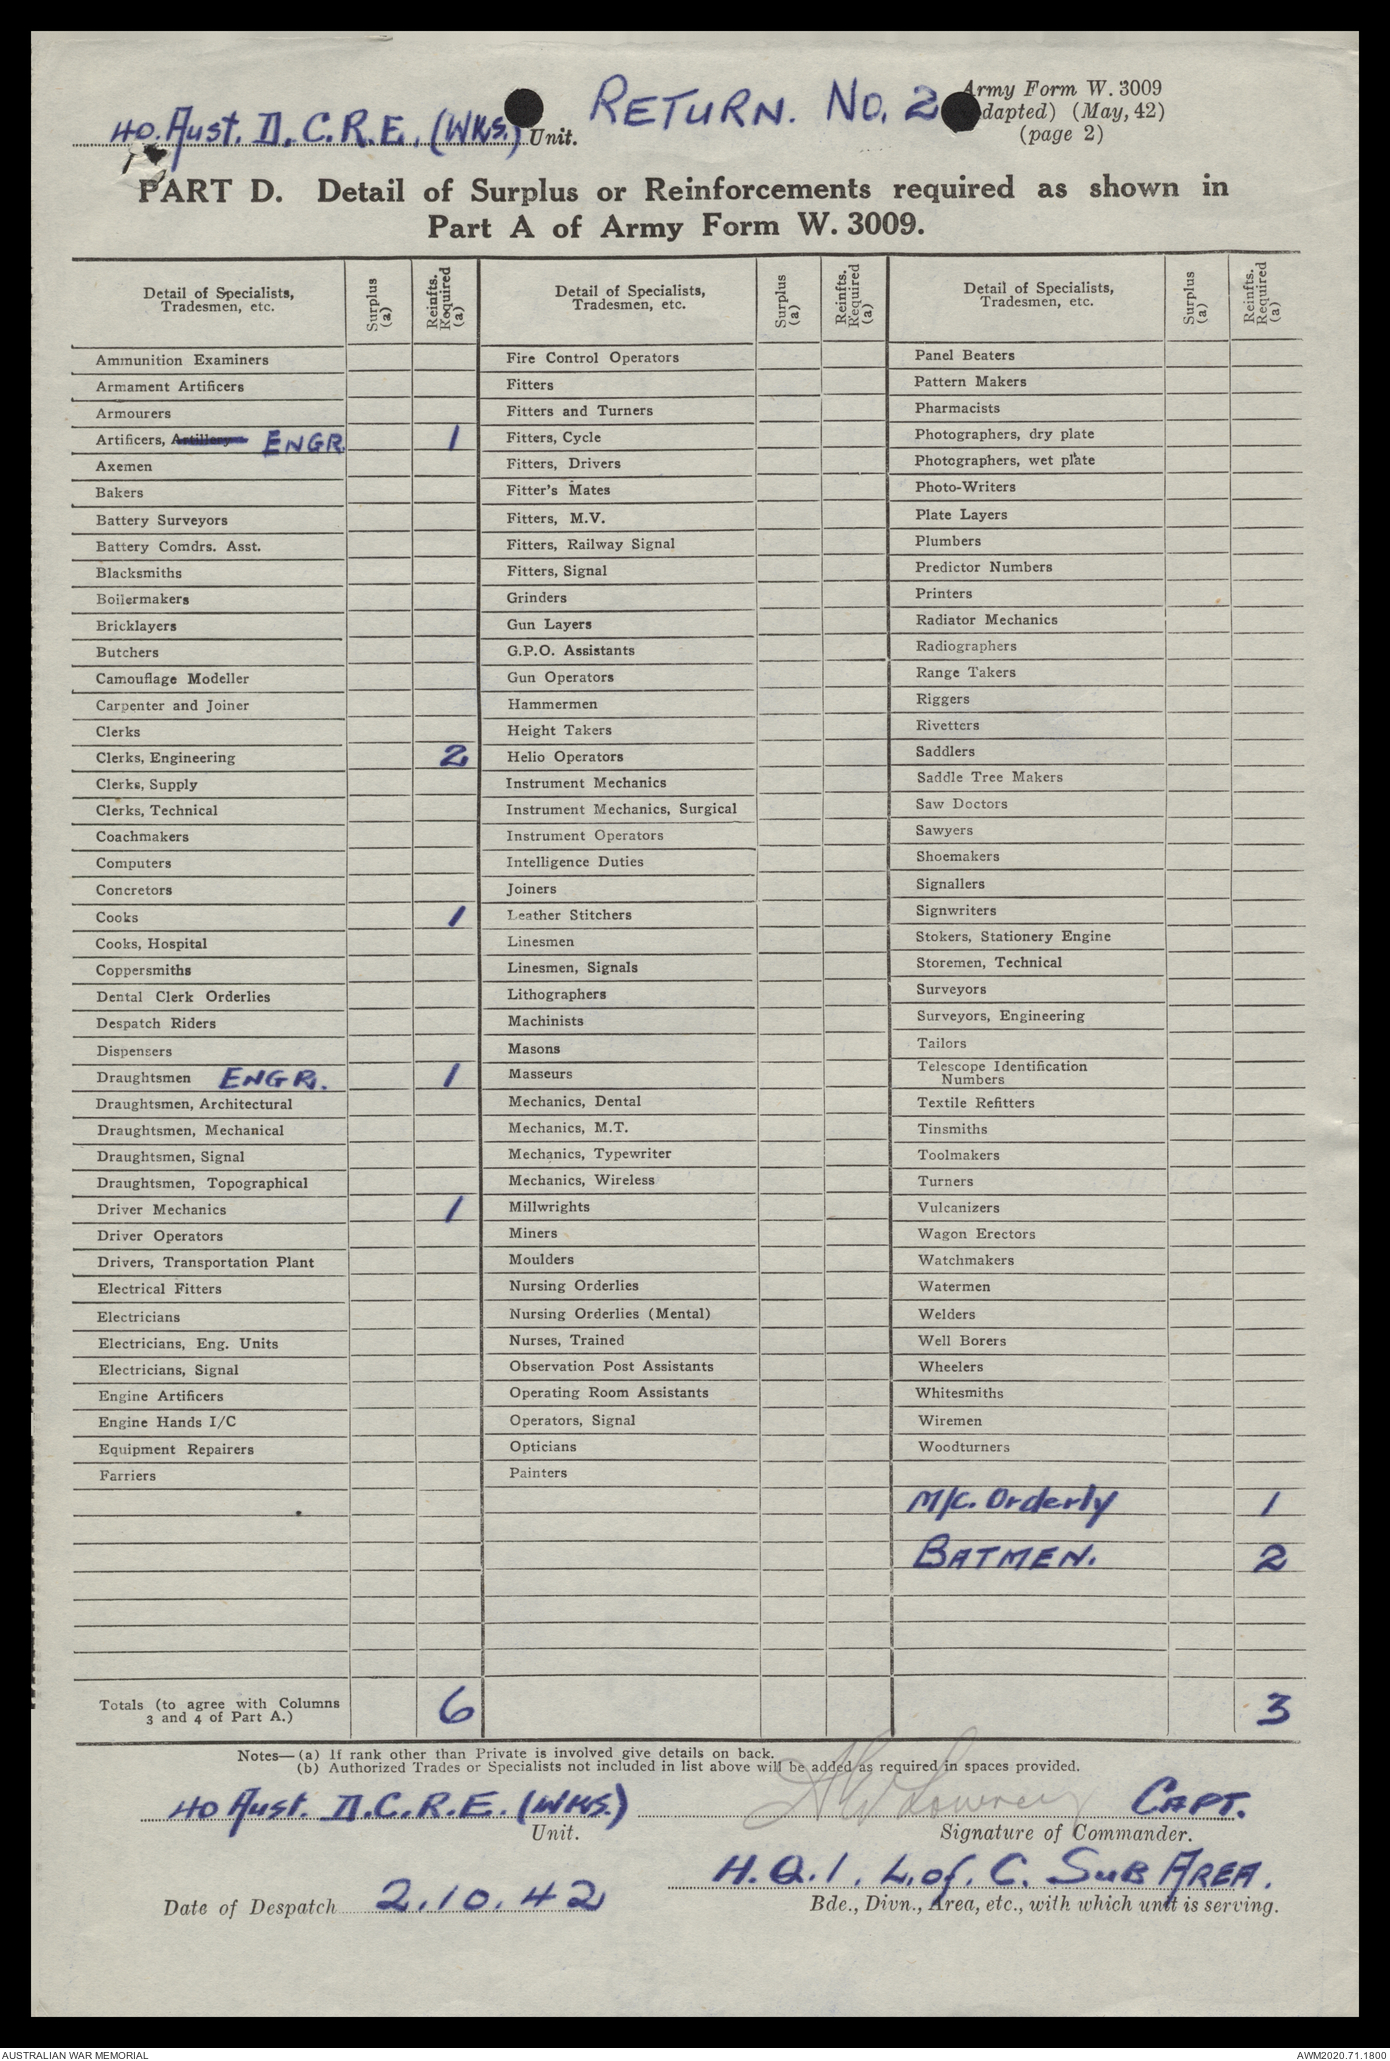 40. Aust. D.C.R.E. (Wks.) Unit. RETURN. NO. 2 Army Form W. 3009
dapted) (May, 42)
(page 2)
PART D. Detail of Surplus or Reinforcements required as shown in
Part A of Army Form W. 3009.
Detail of Specialists, Tradesmen, etc. Surplus (a) Reinfts. Required (a) Detail of Specialists, Tradesmen, etc. Surplus (a) Reinfts. Required (a) Detail of Specialists, Tradesmen, etc. Surplus (a) Reinfts. Required (a)
Ammunition Examiners Fire Control Operators Panel Beaters
Armament Artificers Fitters Pattern Makers
Armourers Fitters and Turners Pharmacists
Artificers, Artillery ENGR. 1 Fitters, Cycle Photographers, dry plate
Axemen Fitters, Drivers Photographers, wet plate
Bakers Fitter's Mates Photo-Writers
Battery Surveyors Fitters, M.V. Plate Layers
Battery Comdrs. Asst. Fitters, Railway Signal Plumbers
Blacksmiths Fitters, Signal Predictor Numbers
Boilermakers Grinders Printers
Bricklayers Gun Layers Radiator Mechanics
Butchers G.P.O. Assistants Radiographers
Camouflage Modeller Gun Operators Range Takers
Carpenter and Joiner Hammermen Riggers
Clerks Height Takers Rivetters
Clerks, Engineering 2 Helio Operators Saddlers
Clerks, Supply Instrument Mechanics Saddle Tree Makers
Clerks, Technical Instrument Mechanics, Surgical Saw Doctors
Coachmakers Instrument Operators Sawyers
Computers Intelligence Duties Shoemakers
Concretors Joiners Signallers
Cooks 1 Leather Stitchers Signwriters
Cooks, Hospital Linesmen Stokers, Stationery Engine
Coppersmiths Linesmen, Signals Storemen, Technical
Dental Clerk Orderlies Lithographers Surveyors
Despatch Riders Machinists Surveyors, Engineering
Dispensers Masons Tailors
Draughtsmen ENGR. 1 Masseurs Telescope Identification Numbers
Draughtsmen, Architectural Mechanics, Dental Textile Refitters
Draughtsmen, Mechanical Mechanics, M.T. Tinsmiths
Draughtsmen, Signal Mechanics, Typewriter Toolmakers
Draughtsmen, Topographical Mechanics, Wireless Turners
Driver Mechanics 1 Millwrights Vulcanizers
Driver Operators Miners Wagon Erectors
Drivers, Transportation Plant Moulders Watchmakers
Electrical Fitters Nursing Orderlies Watermen
Electricians Nursing Orderlies (Mental) Welders
Electricians, Eng. Units Nurses, Trained Well Borers
Electricians, Signal Observation Post Assistants Wheelers
Engine Artificers Operating Room Assistants Whitesmiths
Engine Hands I/C Operators, Signal Wiremen
Equipment Repairers Opticians Woodturners
Farriers Painters
M/C. Orderly 1
BATMEN. 2
Totals (to agree with Columns 3 and 4 of Part A.) 6 3
Notes—(a) If rank other than Private is involved give details on back.
(b) Authorized Trades or Specialists not included in list above will be added as required in spaces provided.
40 Aust. D.C.R.E. (WKS.) CAPT.
Unit. Signature of Commander.
H.Q. 1. L. of. C. SUB AREA.
Date of Despatch 2.10.42 Bde., Divn., Area, etc., with which unit is serving.
AUSTRALIAN WAR MEMORIAL AWM2020.71.1800